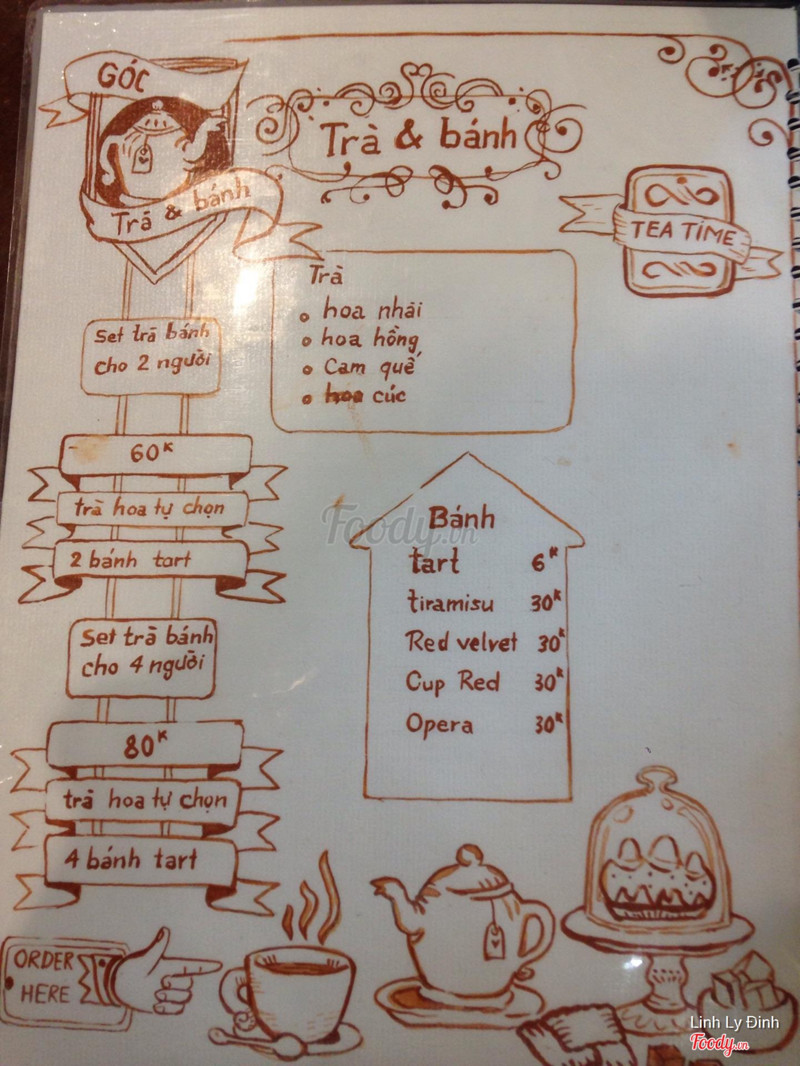 GÓC
Trà & bánh
Trà & bánh
TEA TIME
Set trà bánh
cho 2 người
60K
trà hoa tự chọn
2 bánh tart
Set trà bánh
cho 4 người
80K
trà hoa tự chọn
4 bánh tart
Trà
hoa nhài
hoa hồng
Cam quế
hoa cúc
Bánh
tart 6K
tiramisu 30K
Red velvet 30K
Cup Red 30K
Opera 30K
Foody.vn
ORDER
HERE
Linh Ly Đinh
Foody.vn